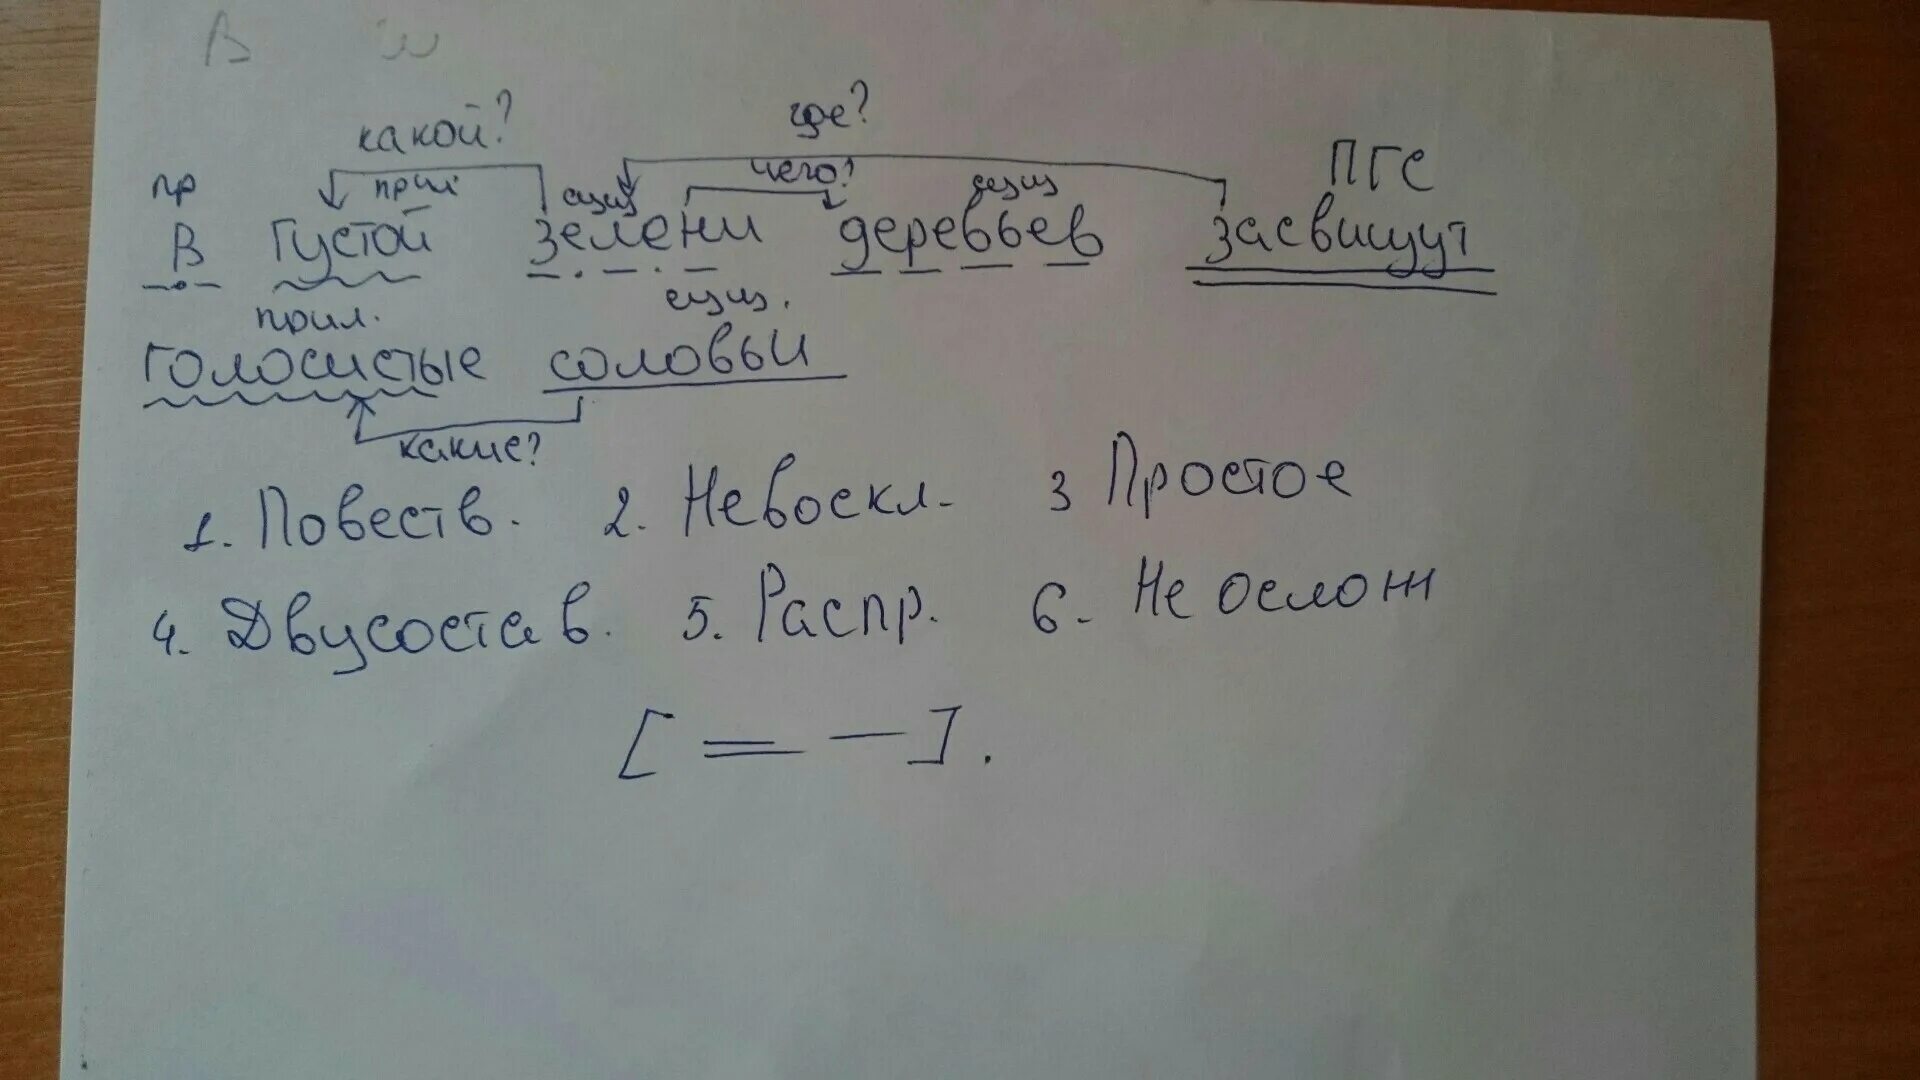 В
какой? где?
пр прил сущ чего? сущ ПГС
В густой зелени деревьев засвищут
прил. сущ.
голосистые соловьи
какие?
1. Повеств. 2. Невоскл. 3 Простое
4. Двусостав. 5. Распр. 6. Не ослож
[ = — ].